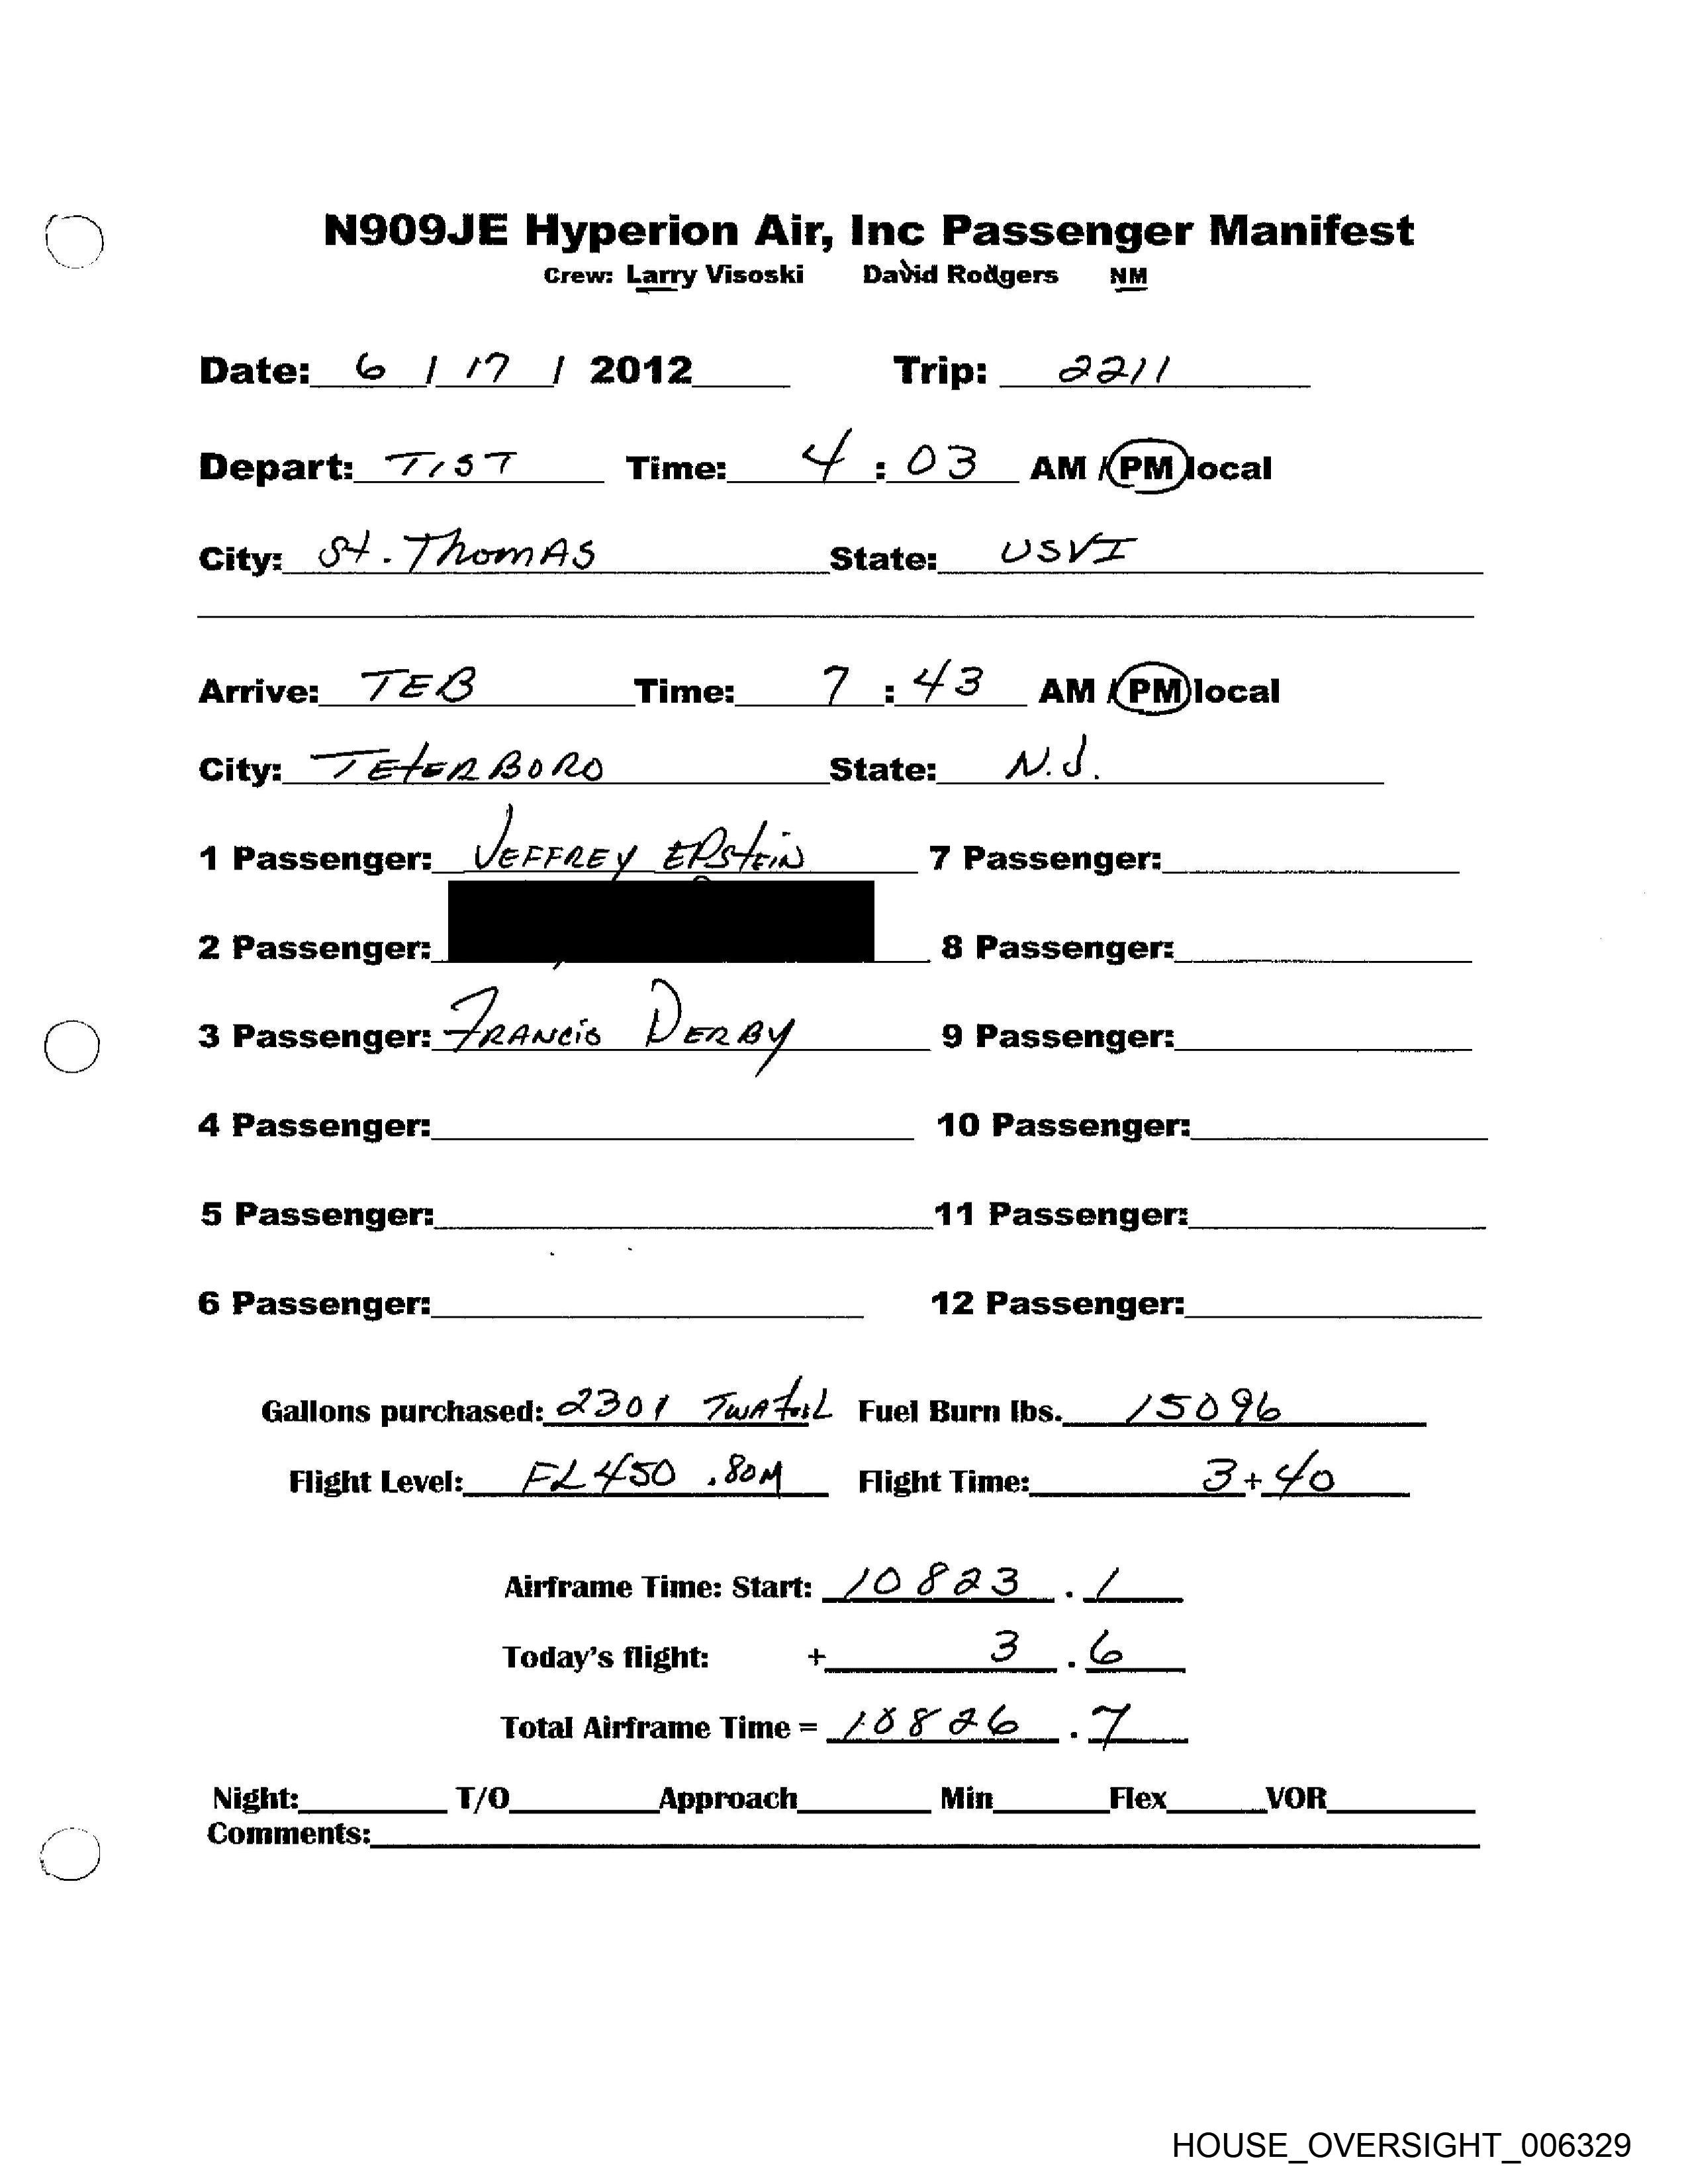 N909JE Hyperion Air, Inc Passenger Manifest
Crew: Larry Visoski David Rodgers NM
Date: 6 / 17 / 2012 Trip: 2211
Depart: TIST Time: 4 : 03 AM / PM local
City: St. ThomAS State: USVI
Arrive: TEB Time: 7 : 43 AM / PM local
City: TEtERBORO State: N.J.
1 Passenger: JEFFREY EPStEiN 7 Passenger:
2 Passenger: 8 Passenger:
3 Passenger: FRANCiS DERBY 9 Passenger:
4 Passenger: 10 Passenger:
5 Passenger: 11 Passenger:
6 Passenger: 12 Passenger:
Gallons purchased: 2301 Fuel Burn lbs. 15096
Flight Level: FL450 .80M Flight Time: 3+40
Airframe Time: Start: 10823 . 1
Today's flight: + 3 . 6
Total Airframe Time = 10826 . 7
Night: T/O Approach Min Flex VOR
Comments:
HOUSE_OVERSIGHT_006329